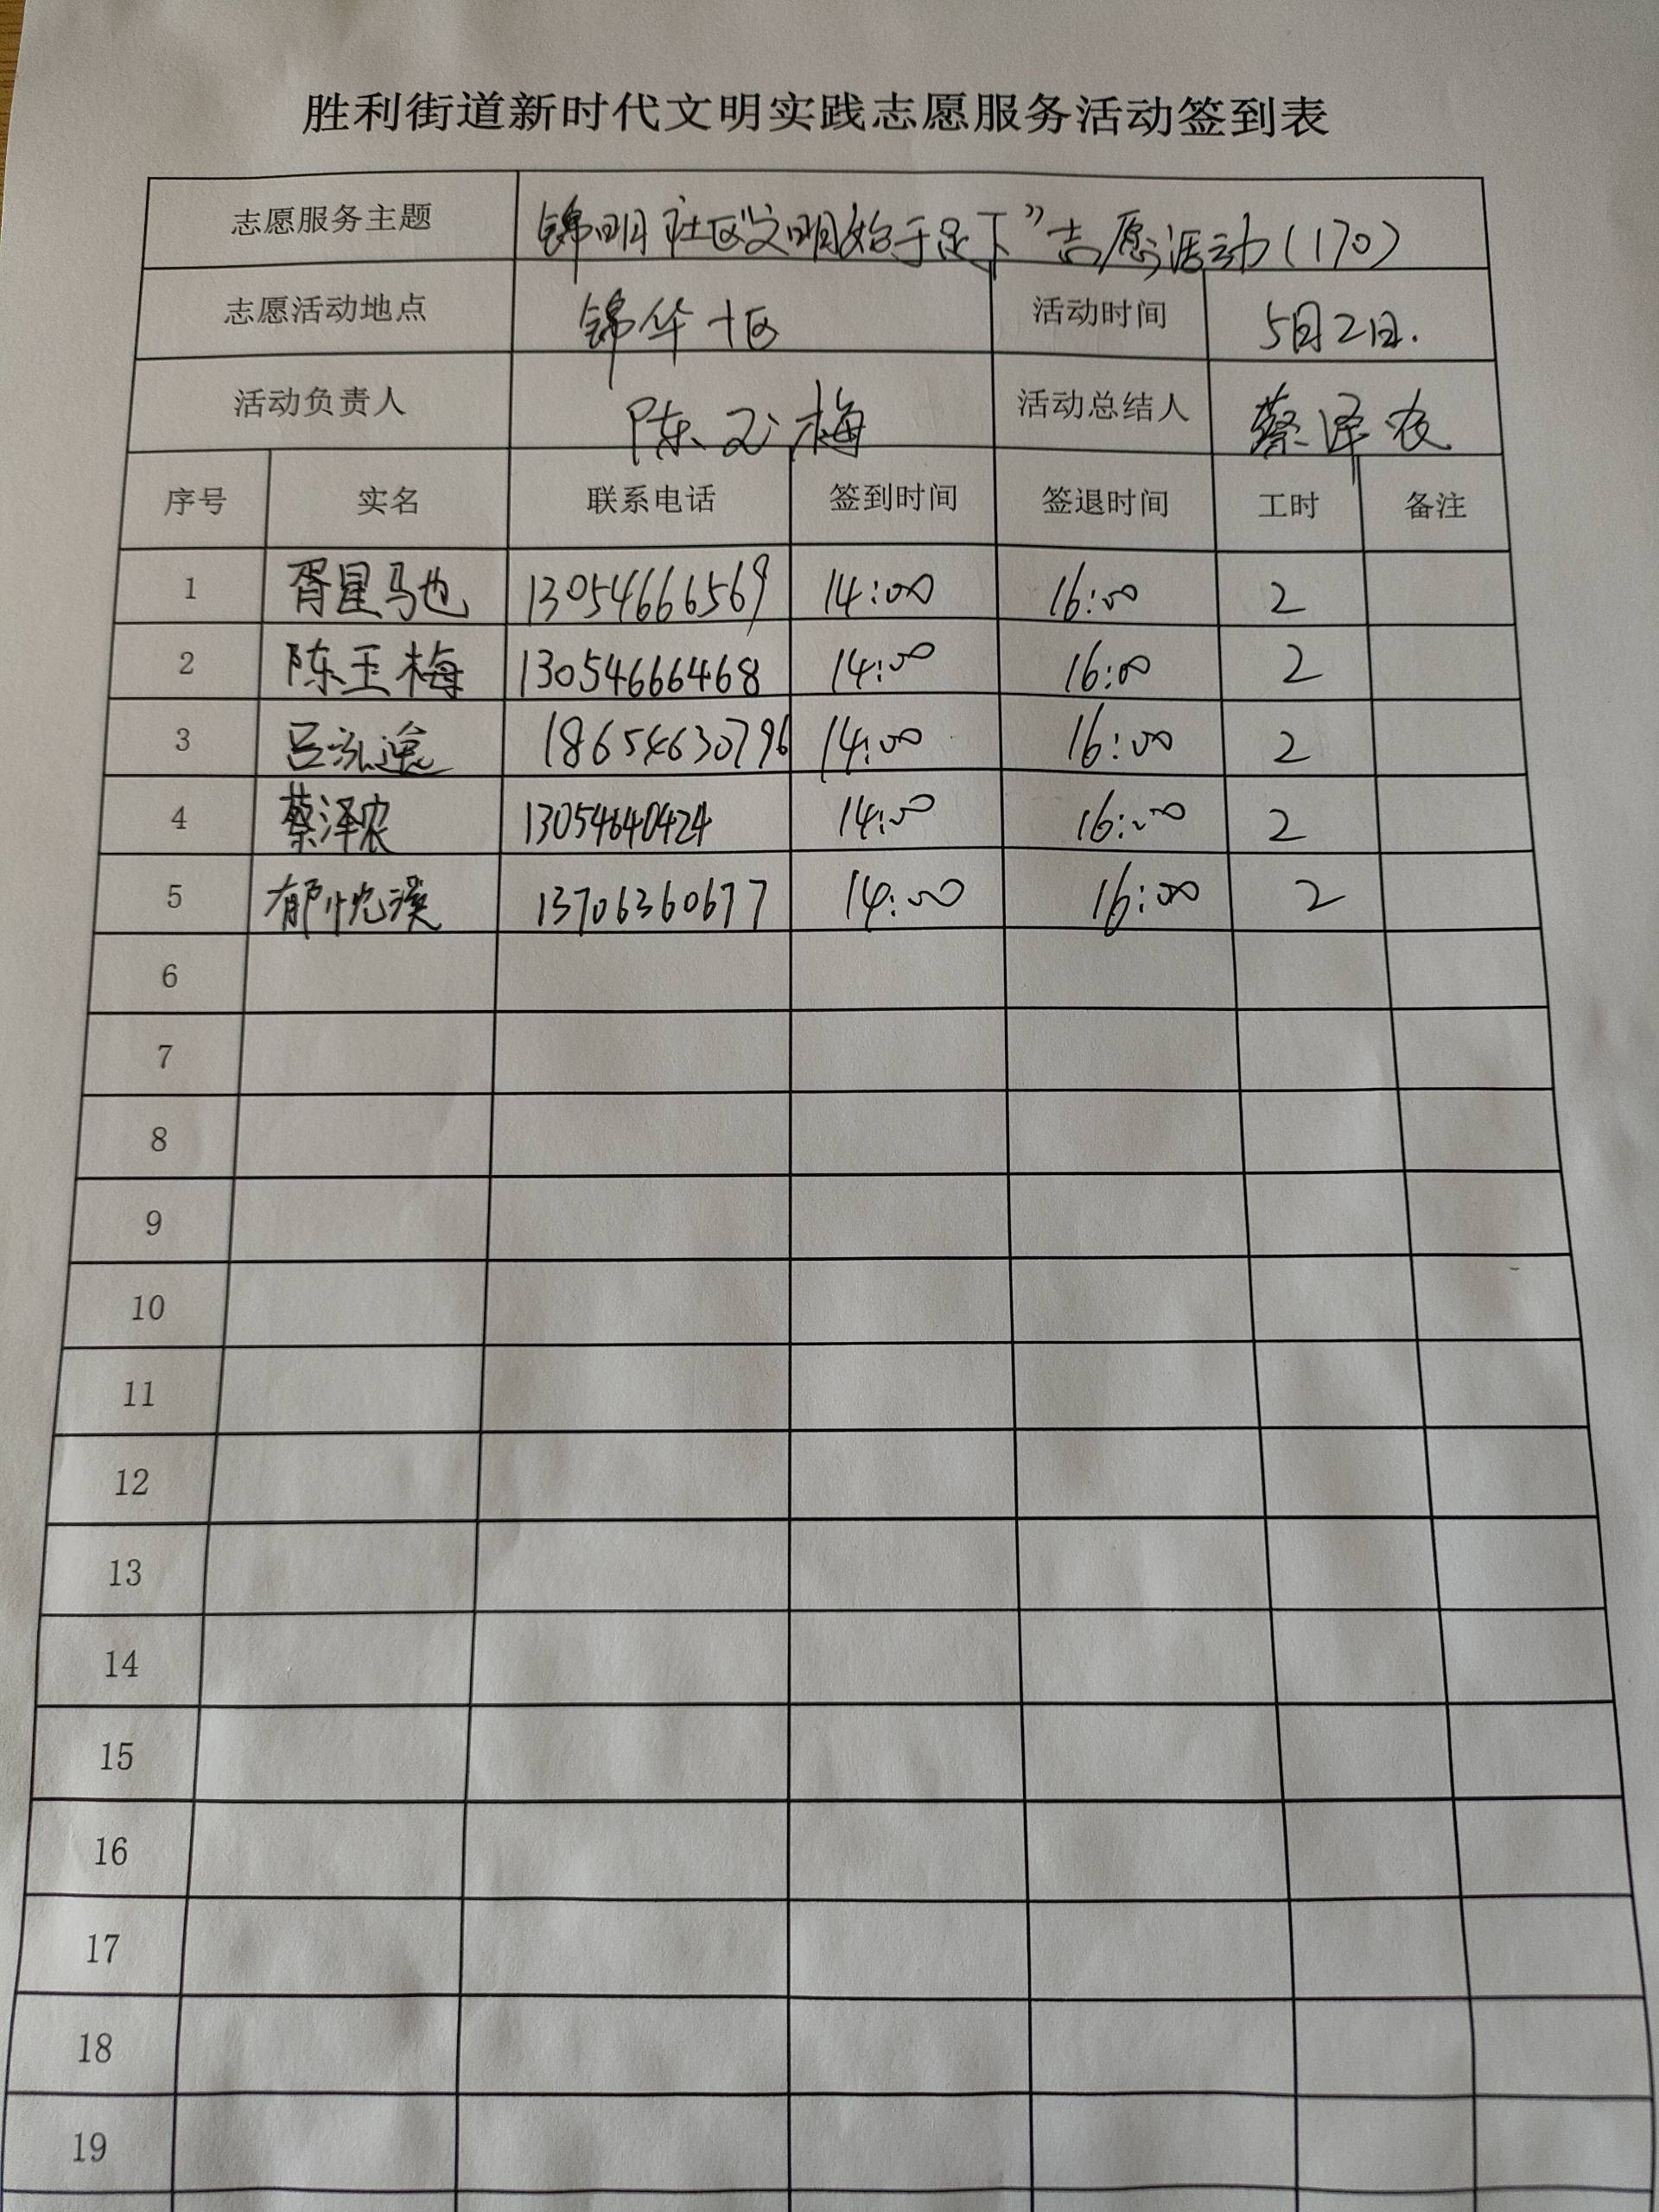 胜利街道新时代文明实践志愿服务活动签到表
志愿服务主题 锦明社区"文明始于足下"志愿活动(170)
志愿活动地点 锦华十区 活动时间 5月2日.
活动负责人 陈玉梅 活动总结人 蔡泽农
序号 实名 联系电话 签到时间 签退时间 工时 备注
1 胥星驰 13054666569 14:00 16:00 2
2 陈玉梅 13054666468 14:00 16:00 2
3 吕泓逸 18654630796 14:00 16:00 2
4 蔡泽农 13054640424 14:00 16:00 2
5 13706360677 14:00 16:00 2
6
7
8
9
10
11
12
13
14
15
16
17
18
19